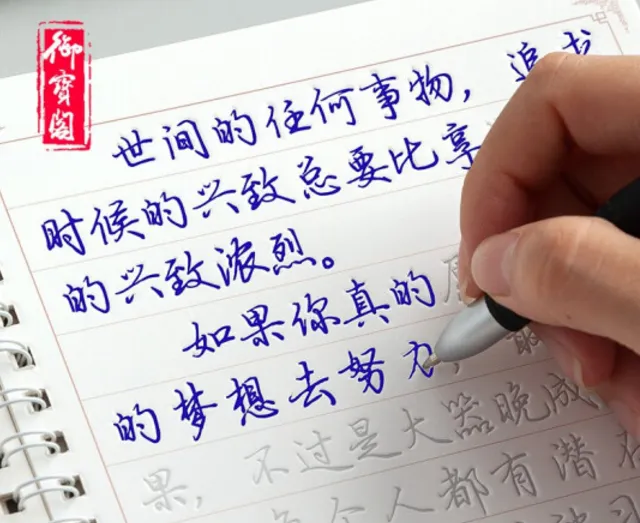 御寶閣
世间的任何事物，追求
时候的兴致总要比享
的兴致浓烈。
如果你真的
的梦想去努力，
果，不过是大器晚成
个人都有潜在